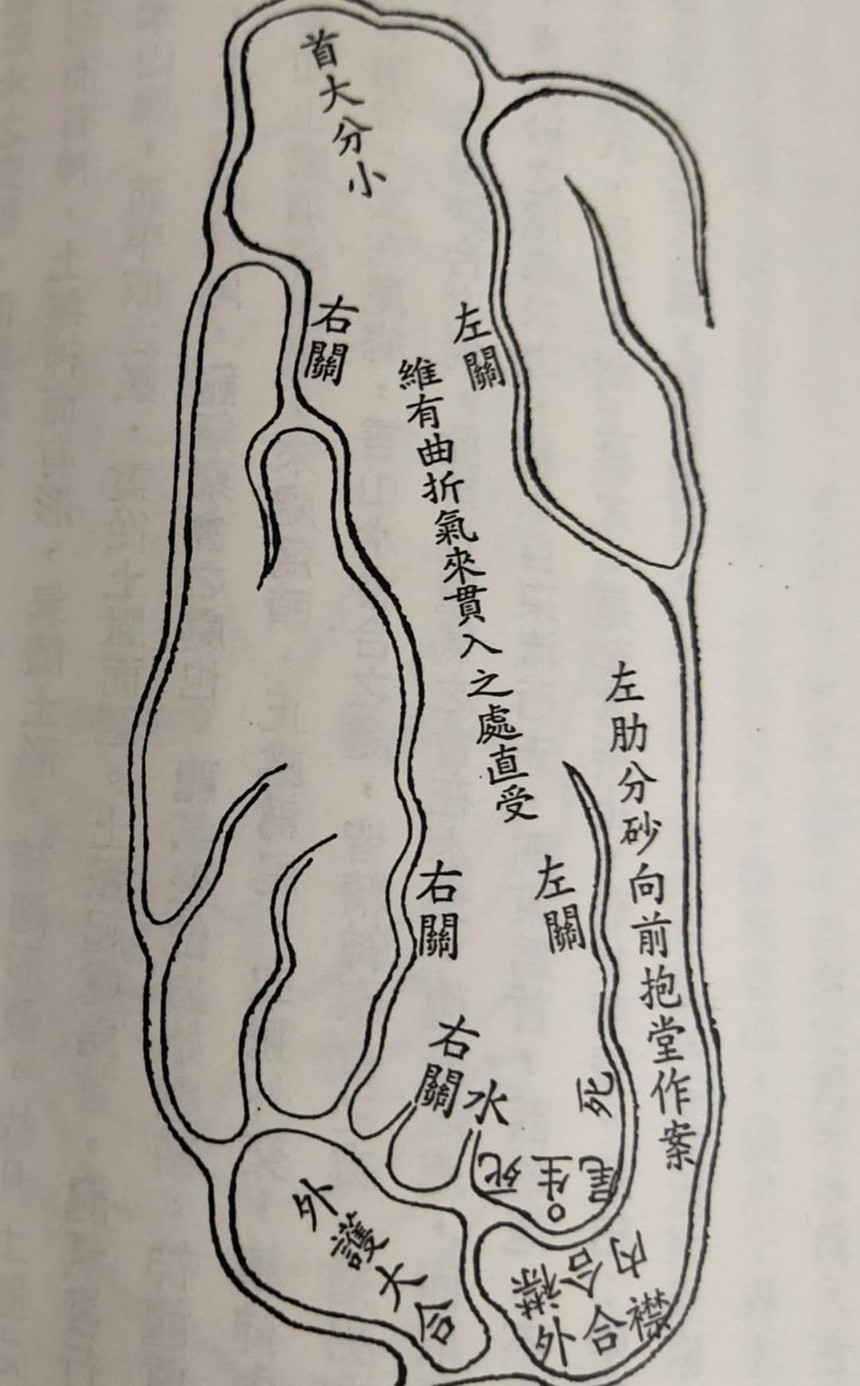 首大分小
右關
左關
維有曲折氣來貫入之處直受
左肋分砂向前抱堂作案
右關
左關
右關
水
死
死
生
尾
內合襟
外合襟
外護大合